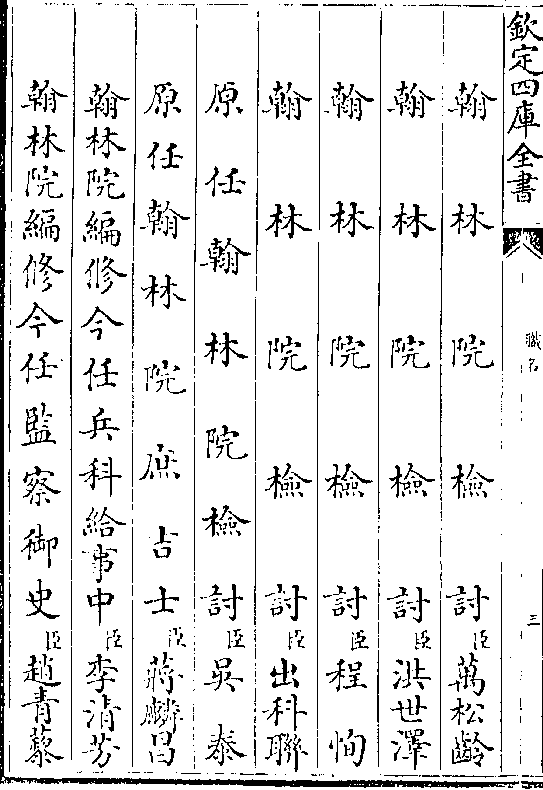 欽定四庫全書
職名
三
翰林院檢討臣萬松齡
翰林院檢討臣洪世澤
翰林院檢討臣程恂
翰林院檢討臣出科聯
原任翰林院檢討臣吳泰
原任翰林院庶吉士臣蔣麟昌
翰林院編修今任兵科給事中臣李清芳
翰林院編修今任監察御史臣趙青藜